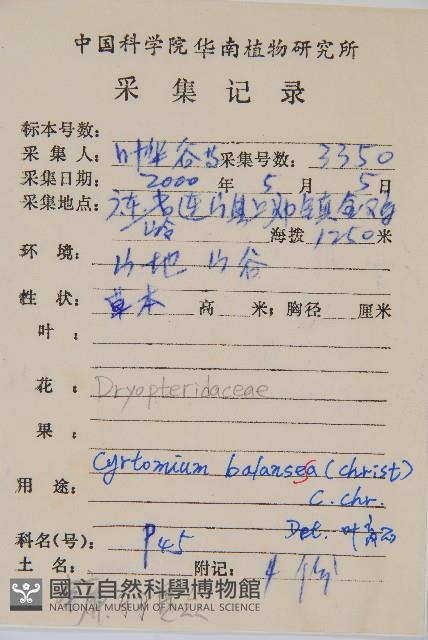 中国科学院华南植物研究所
采集记录
标本号数:
采集人: 叶华谷 采集号数: 3350
采集日期: 2000 年 5 月 5 日
采集地点: 广东省连山县上帅镇
海拨 1250 米
环境: 山地 山谷
性状: 草本 高 米; 胸径 厘米
叶:
花: Dryopteridaceae
果:
Cyrtomium balansa (christ)
用途: C. chr.
Det. 叶
科名(号): P45
土名: 附记: 4份
國立自然科學博物館
NATIONAL MUSEUM OF NATURAL SCIENCE